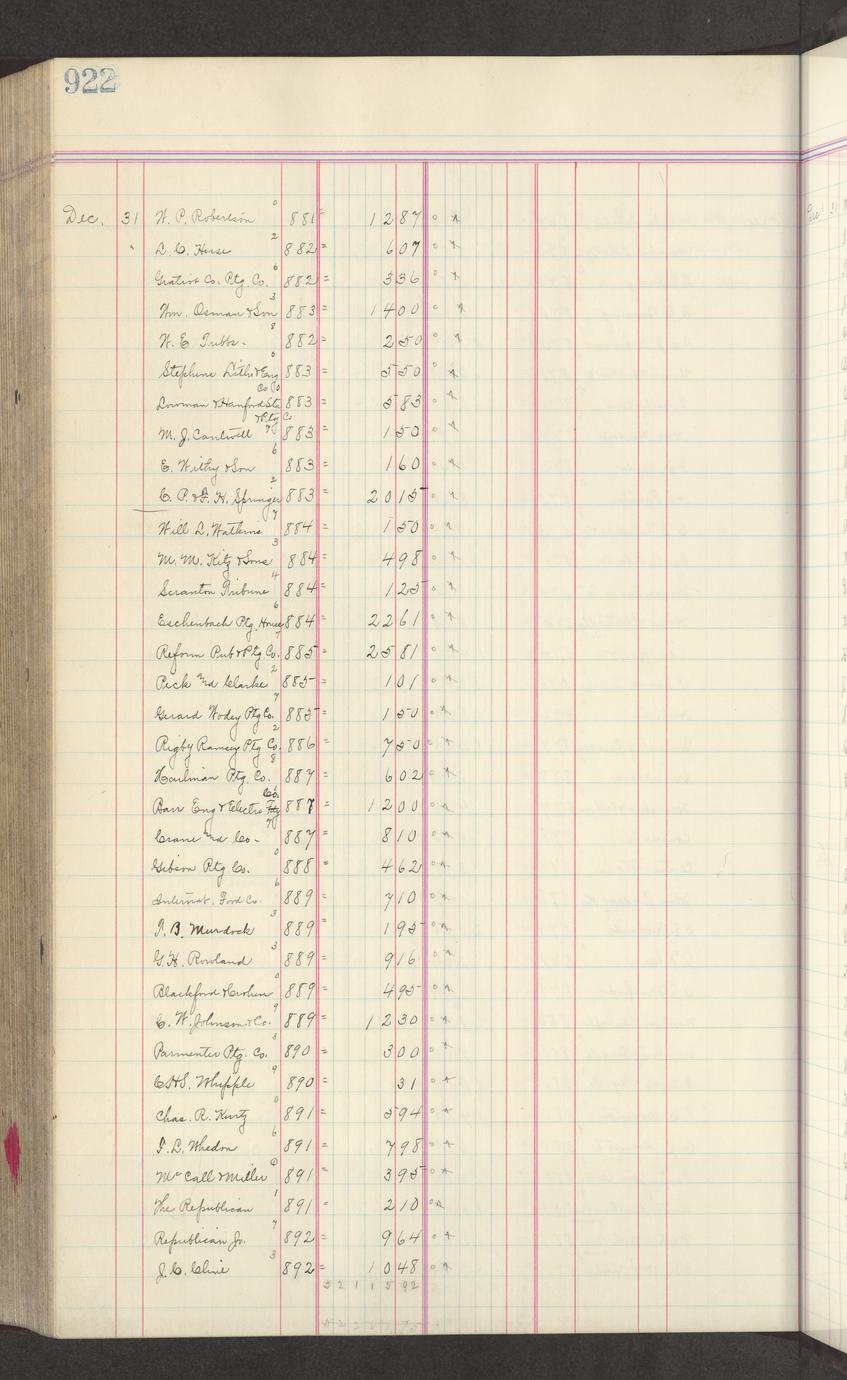 922
Dec. 31 W. P. Robertson 0 881 = 1287
" L. C. Huse 2 882 = 607
Gratiot Co. Ptg. Co. 6 882 = 336
Wm. Osman & Son 3 883 = 1400
W. E. Tubbs - 8 882 = 250
Stephens Litho & Eng Co 0 883 = 550
Lowman & Hanford Sta & Ptg Co 0 883 = 583
M. J. Cantwell 7 883 = 150
E. Withy & Son 6 883 = 160
C. P. & J. H. Springer 2 883 = 2015
Will L. Watkins 7 884 = 150
M. M. Kitz & Sons 3 884 = 498
Scranton Tribune 4 884 = 125
Eschenbach Ptg. House 6 884 = 2261
Reform Pub & Ptg Co. 7 885 = 2581
Peck and Clarke 2 885 = 101
Gerard Wodey Ptg Co. 7 885 = 150
Rigby Ramsey Ptg Co. 2 886 = 750
Ptg. Co. 8 887 = 602
Barr Eng & Electro Co. 887 = 1200
Crane and Co - 7 887 = 810
Gibson Ptg Co. 0 888 = 462
Internat. Food Co. 6 889 = 710
J. B. Murdock 3 889 = 195
G. H. Rowland 3 889 = 916
Blackford & 0 889 = 495
C. W. Johnson & Co. 9 889 = 1230
Parmenter Ptg. Co. 3 890 = 300
Whipple 9 890 = 31
Chas. R. Kurtz 0 891 = 594
F. L. Whedon 6 891 = 798
McCall & Miller 0 891 = 395
The Republican 1 891 = 210
Republican Jo. 7 892 = 964
J. C. Cline 3 892 = 1048
5211592